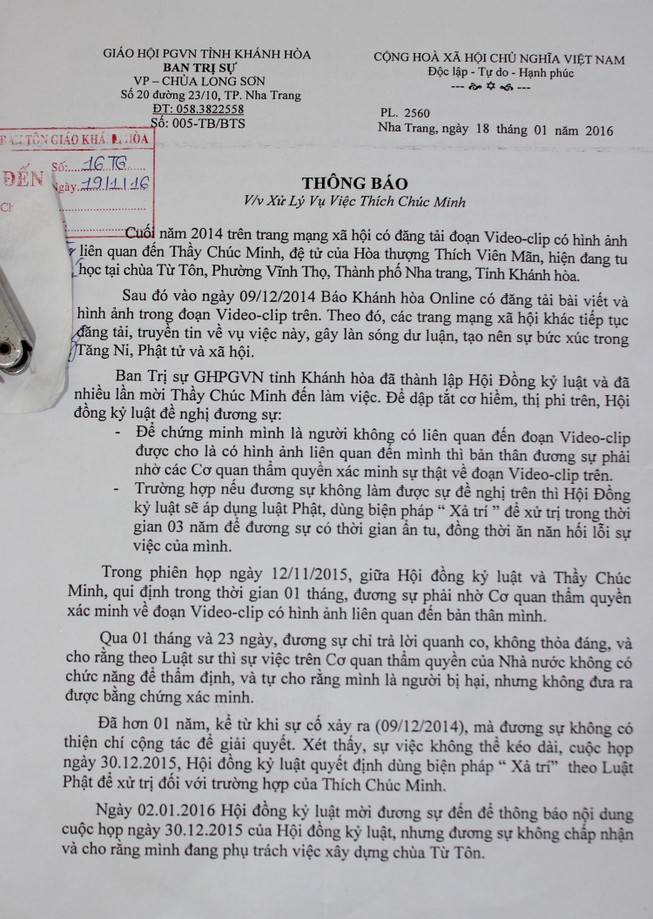 GIÁO HỘI PGVN TỈNH KHÁNH HÒA
BAN TRỊ SỰ
VP – CHÙA LONG SƠN
Số 20 đường 23/10, TP. Nha Trang
ĐT: 058.3822558
Số: 005-TB/BTS
CỘNG HOÀ XÃ HỘI CHỦ NGHĨA VIỆT NAM
Độc lập - Tự do - Hạnh phúc
PL. 2560
Nha Trang, ngày 18 tháng 01 năm 2016
TÔN GIÁO KHÁNH HÒA
ĐẾN
Số: 16TG
Ngày 19/1/16
THÔNG BÁO
V/v Xử Lý Vụ Việc Thích Chúc Minh
Cuối năm 2014 trên trang mạng xã hội có đăng tải đoạn Video-clip có hình ảnh
liên quan đến Thầy Chúc Minh, đệ tử của Hòa thượng Thích Viên Mãn, hiện đang tu
học tại chùa Từ Tôn, Phường Vĩnh Thọ, Thành phố Nha trang, Tỉnh Khánh hòa.
Sau đó vào ngày 09/12/2014 Báo Khánh hòa Online có đăng tải bài viết và
hình ảnh trong đoạn Video-clip trên. Theo đó, các trang mạng xã hội khác tiếp tục
đăng tải, truyền tin về vụ việc này, gây làn sóng dư luận, tạo nên sự bức xúc trong
Tăng Ni, Phật tử và xã hội.
Ban Trị sự GHPGVN tỉnh Khánh hòa đã thành lập Hội Đồng kỷ luật và đã
nhiều lần mời Thầy Chúc Minh đến làm việc. Để dập tắt cơ hiềm, thị phi trên, Hội
đồng kỷ luật đề nghị đương sự:
- Để chứng minh mình là người không có liên quan đến đoạn Video-clip
được cho là có hình ảnh liên quan đến mình thì bản thân đương sự phải
nhờ các Cơ quan thẩm quyền xác minh sự thật về đoạn Video-clip trên.
- Trường hợp nếu đương sự không làm được sự đề nghị trên thì Hội Đồng
kỷ luật sẽ áp dụng luật Phật, dùng biện pháp “ Xả trí ” để xử trị trong thời
gian 03 năm để đương sự có thời gian ẩn tu, đồng thời ăn năn hối lỗi sự
việc của mình.
Trong phiên họp ngày 12/11/2015, giữa Hội đồng kỷ luật và Thầy Chúc
Minh, qui định trong thời gian 01 tháng, đương sự phải nhờ Cơ quan thẩm quyền
xác minh về đoạn Video-clip có hình ảnh liên quan đến bản thân mình.
Qua 01 tháng và 23 ngày, đương sự chỉ trả lời quanh co, không thỏa đáng, và
cho rằng theo Luật sư thì sự việc trên Cơ quan thẩm quyền của Nhà nước không có
chức năng để thẩm định, và tự cho rằng mình là người bị hại, nhưng không đưa ra
được bằng chứng xác minh.
Đã hơn 01 năm, kể từ khi sự cố xảy ra (09/12/2014), mà đương sự không có
thiện chí cộng tác để giải quyết. Xét thấy, sự việc không thể kéo dài, cuộc họp
ngày 30.12.2015, Hội đồng kỷ luật quyết định dùng biện pháp “ Xả trí” theo Luật
Phật để xử trị đối với trường hợp của Thích Chúc Minh.
Ngày 02.01.2016 Hội đồng kỷ luật mời đương sự đến để thông báo nội dung
cuộc họp ngày 30.12.2015 của Hội đồng kỷ luật, nhưng đương sự không chấp nhận
và cho rằng mình đang phụ trách việc xây dựng chùa Từ Tôn.